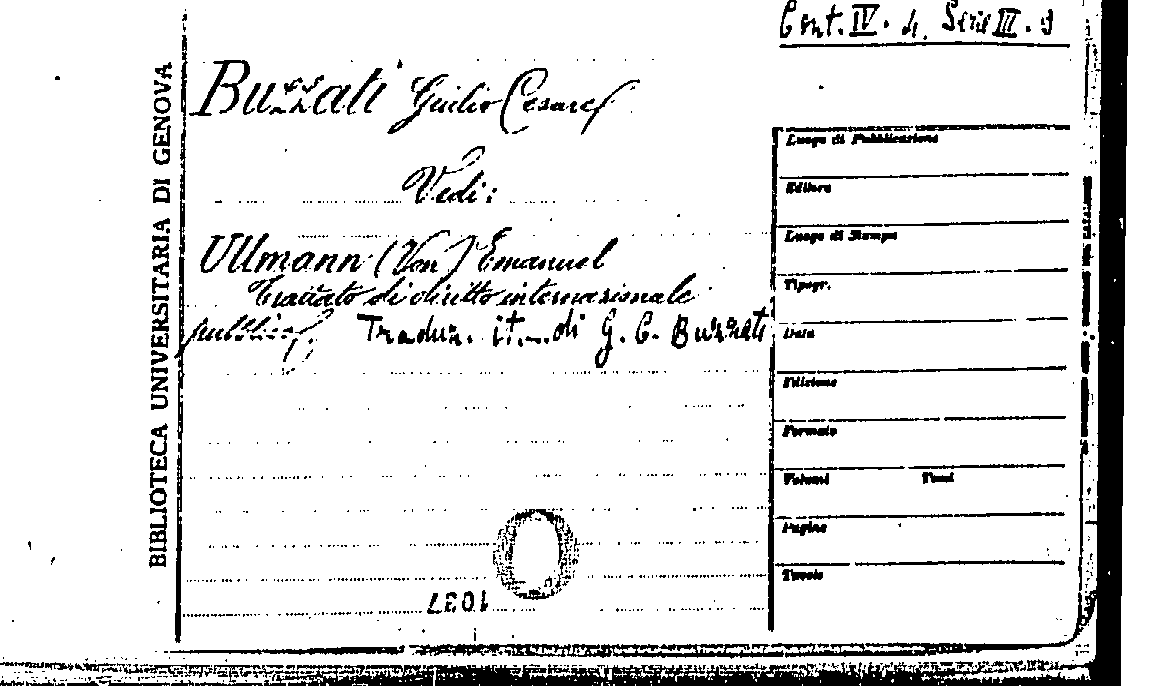 Cont. IV. 4. Serie III. 9
BIBLIOTECA UNIVERSITARIA DI GENOVA
Buzzati Giulio Cesare
Vedi:
Ullmann (Von) Emanuel
Trattato di diritto internazionale
pubblico. Traduz. it. di G. C. Buzzati
Luogo di Pubblicazione
Editore
Luogo di Stampa
Tipogr.
Data
Edizione
Formato
Volumi Tomi
Pagine
Tavole
1037